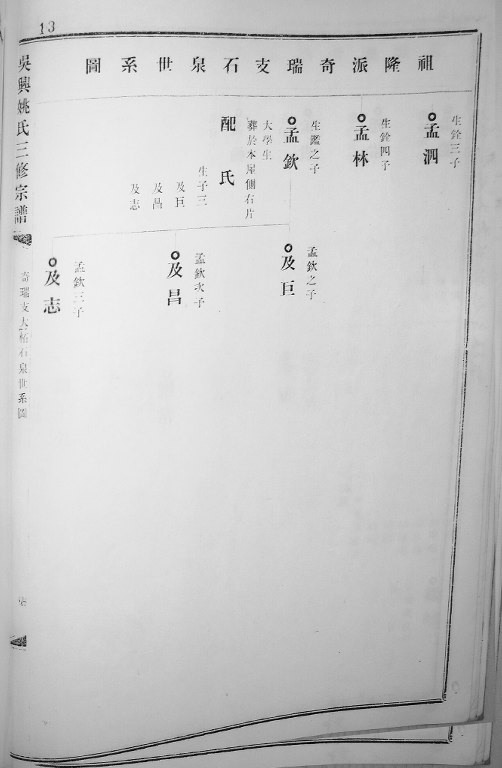 13
祖隆派奇瑞支石泉世系圖
生銓三子
孟泗
生銓四子
孟林
生鑑之子
孟欽
大學生
葬於本屋側右片
配 氏
生子三
及巨
及昌
及志
孟欽之子
及巨
孟欽次子
及昌
孟欽三子
及志
吳興姚氏三修宗譜
奇瑞支大栢石泉世系圖